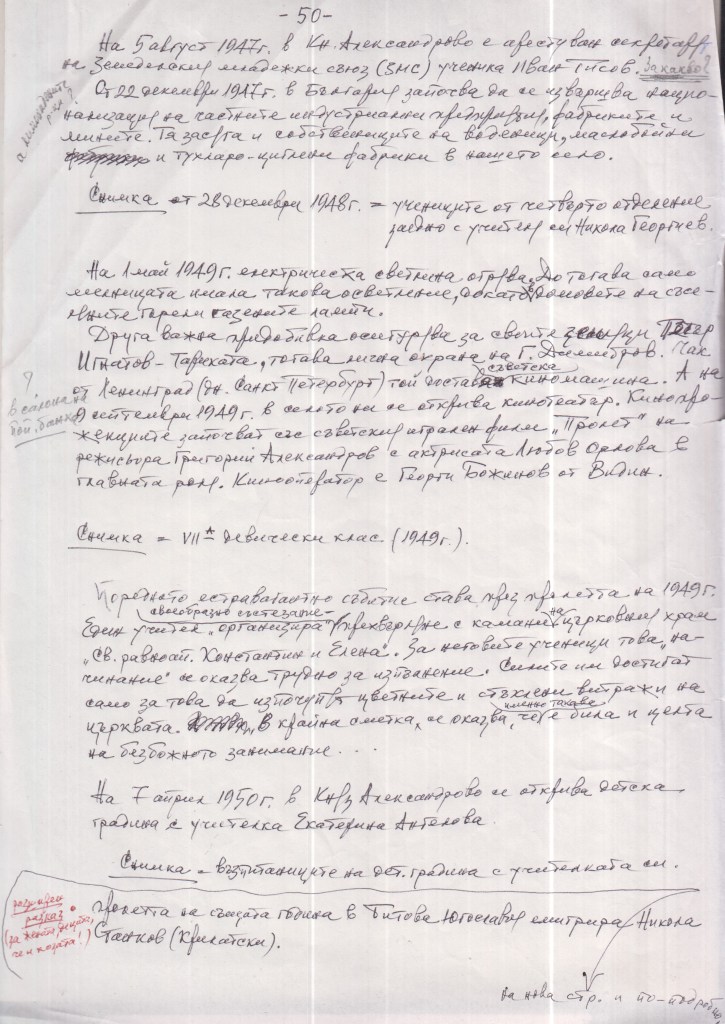 - 50 -
На 5 август 1947 г. в Кн. Александрово е арестуван секретарят
на Земеделския младежки съюз (ЗМС) ученика Иван Гисов. За какво?
От 22 декември 1947 г. в България започва да се извършва нацио-
нализация на частните индустриални предприятия, фабриките и
мините. Тя засяга и собствениците на воденици, маслобойни
и тухларо-циглени фабрики в нашето село.
Снимка от 28 декември 1948 г. = учениците от четвърто отделение
заедно с учителя си Никола Георгиев.
На 1 май 1949 г. електрическа светлина огрява. Дотогава само
мелницата имала такова осветление, докато в домовете на съсе-
ляните горели газените лампи.
Друга важна придобивка осигурява за своите Петър
Игнатов - Тарахата, тогава лична охрана на Г. Димитров. Чак
от Ленинград (дн. Санкт Петербург) той доставя съветска киномашина. А на
9 септември 1949 г. в селото ни се открива кинотеатър. Кинопро-
жекциите започват със съветския игрален филм "Пролет" на
режисьора Григорий Александров с актрисата Любов Орлова в
главната роля. Кинооператор е Георги Божинов от Видин.
?
в салона на
бой. банка
Снимка = VII А девически клас (1949 г.).
Поредното екстравагантно събитие става през пролетта на 1949 г.
своеобразно състезание -
Един учител "организира" прехвърляне с камани на църковния храм
"Св. равноап. Константин и Елена". За неговите ученици това "на-
чинание" се оказва трудно за изпълнение. Силите им достигат
само за това да изпочупят цветните и стъклени витражи на
църквата. В крайна сметка, се оказва, че именно такава е била и целта
на безбожното занимание...
На 7 април 1950 г. в Княз Александрово се открива детска
градина с учителка Екатерина Ангелова.
Снимка = възпитаниците на дет. градина с учителката си.
разказ
пролетта на същата година в Титова Югославия емигрира Никола
Станков (Крилатски).
на нова стр. и по-подробно